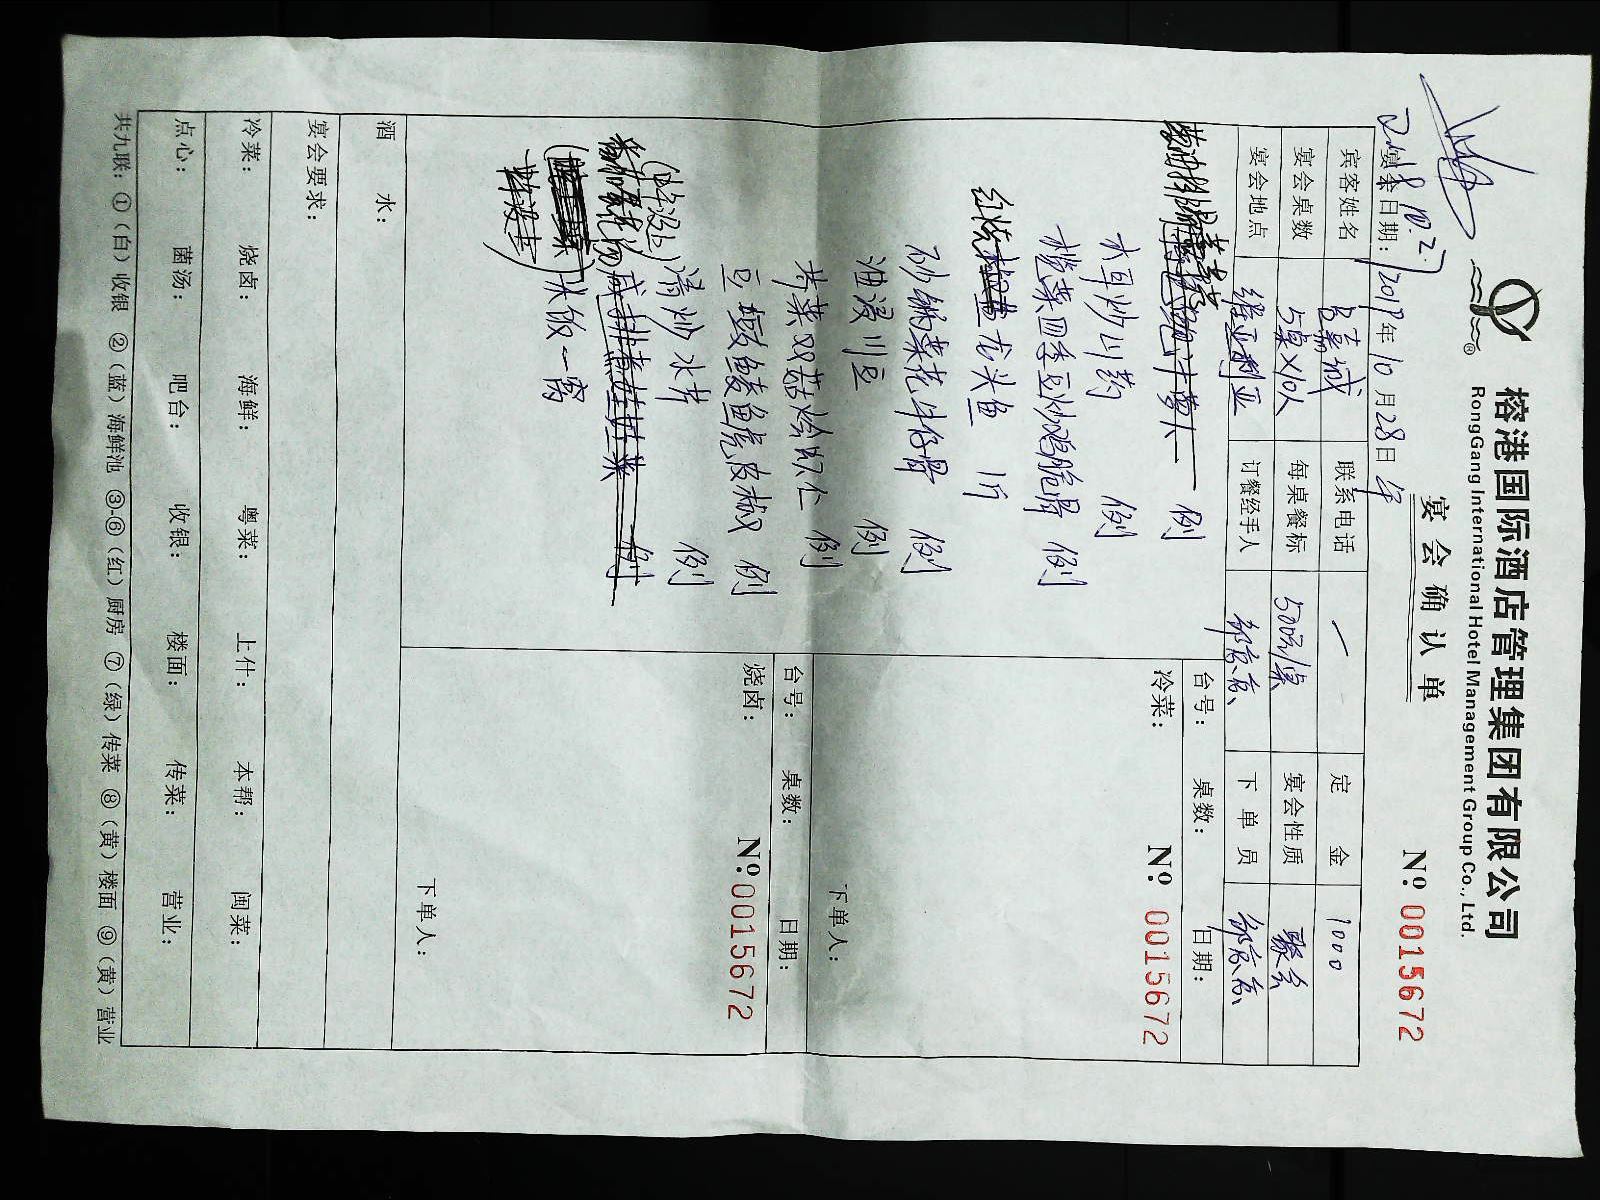 榕港国际酒店管理集团有限公司
RongGang International Hotel Management Group Co., Ltd.
®
宴会确认单
№ 0015672
宴会日期: 2019年10月28日 午
宾客姓名 联系电话 一 定金 1000
宴会桌数 5桌×10人 每桌餐标 500元/桌 宴会性质 聚会
宴会地点 维亚利亚 订餐经手人 下单员
例
木耳炒山药 例
榄菜四季豆炒鸡脆骨 例
红烧 龙头鱼 1斤
砂锅菜花牛仔骨 例
油浸川豆 例
芥菜双菇烩虾仁 例
豆豉鲮鱼虎皮椒 例
清炒水芹 例
例
米饭一窝
台号: 桌数: 日期:
冷菜: № 0015672
下单人:
台号: 桌数: 日期:
烧卤: № 0015672
下单人:
酒水:
宴会要求:
冷菜: 烧卤: 海鲜: 粤菜: 上什: 本帮: 闽菜:
点心: 菌汤: 吧台: 收银: 楼面: 传菜: 营业:
共九联: ①(白)收银 ②(蓝)海鲜池 ③-⑥(红)厨房 ⑦(绿)传菜 ⑧(黄)楼面 ⑨(黄)营业